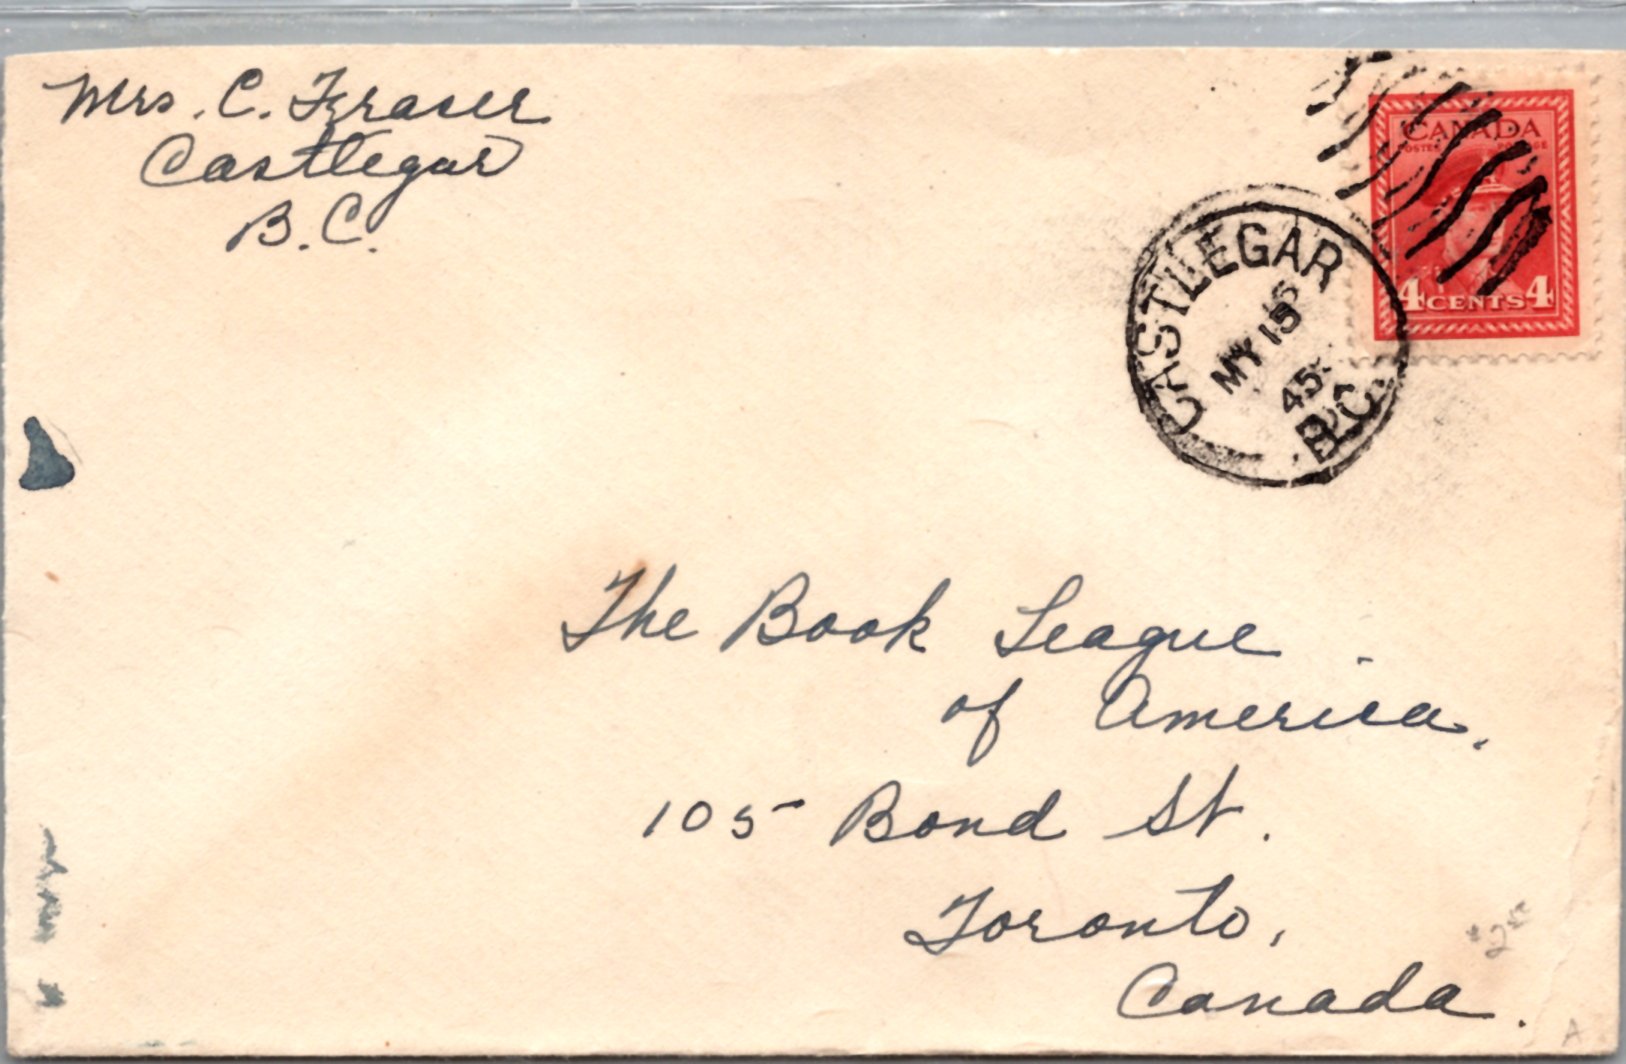 Mrs. C. Fraser
Castlegar
B.C.
CANADA
POSTES POSTAGE
4 CENTS 4
CASTLEGAR
MY 15
45
B.C.
The Book League
of America,
105 Bond St.
Toronto,
Canada.
A